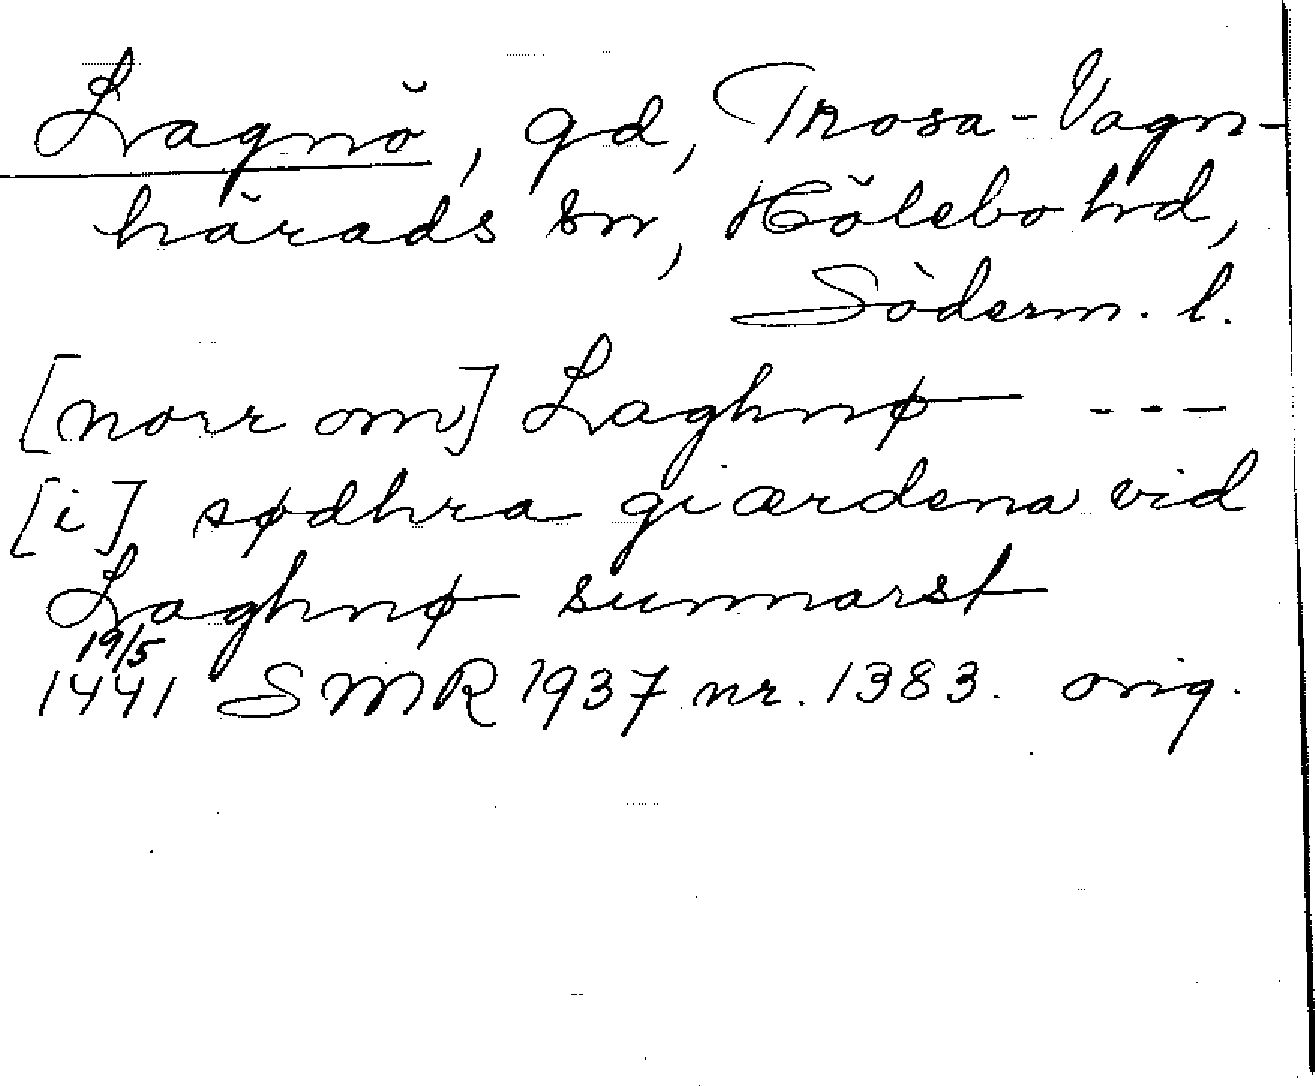 Lagnö, gd, Trosa-Vagn-
härads sn, Hölebo hd,
Söderm. l.
[norr om] Laghnø ---
[i] sødhra giærdena vid
Laghnø sunnarst
19/5
1441 SMR 1937 nr. 1383. orig.